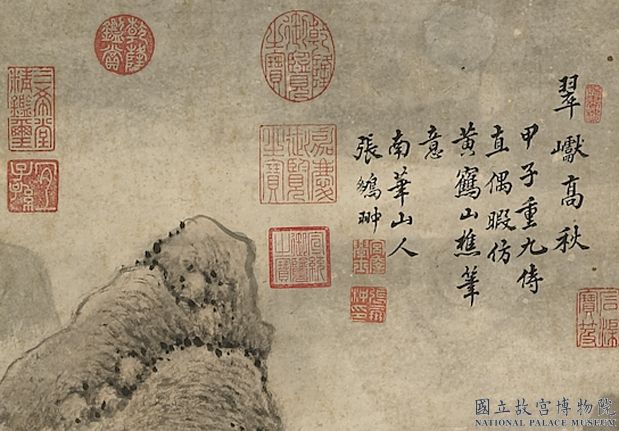 翠巘高秋
甲子重九侍
直偶暇仿
黃鶴山樵筆
意
南華山人
張鵬翀
乾隆御覽之寶
嘉慶御覽之寶
宣統御覽之寶
乾隆鑑賞
三希堂精鑑璽
宜子孫
石渠寶笈
國立故宮博物院
NATIONAL PALACE MUSEUM